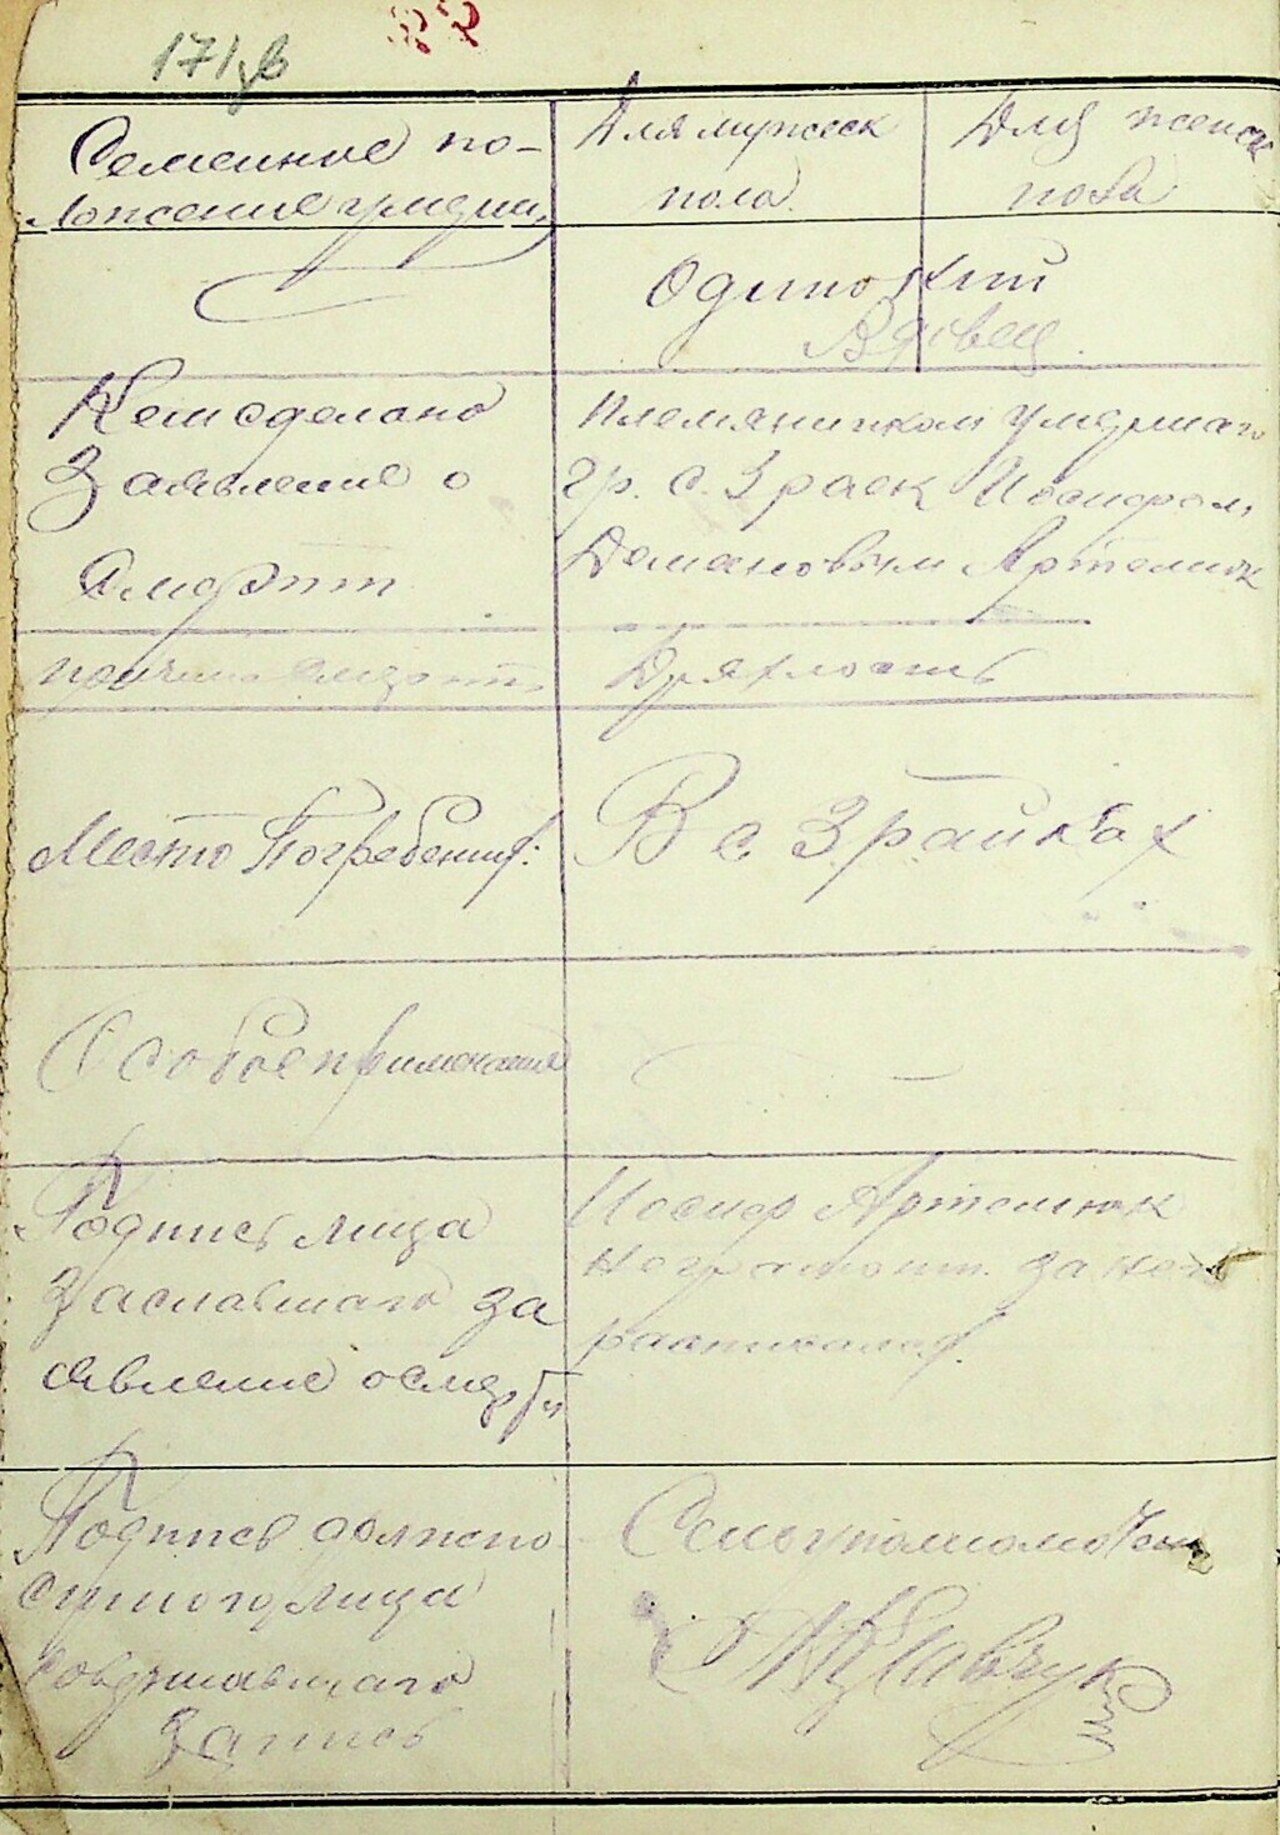 171зв
Семейное по-
ложение умерш.
Для мужеск
пола.
Для женск
пола
Одинокий
Вдовец.
Кем сделано
Заявление о
Смерти
Племянником умершаго
гр. с. Зраек Иосифом
Демяновым Артемюк
причина смерти
Дряхлость
Место Погребения:
В с. Зрайках
Особое примечание
Подпись лица
Заславшаго за
явление о смерти
Иосиф Артемюк
неграмотн. за него
расписался.
Подпись должно
стного лица
совершавшаго
запись
Сельуполномоченн